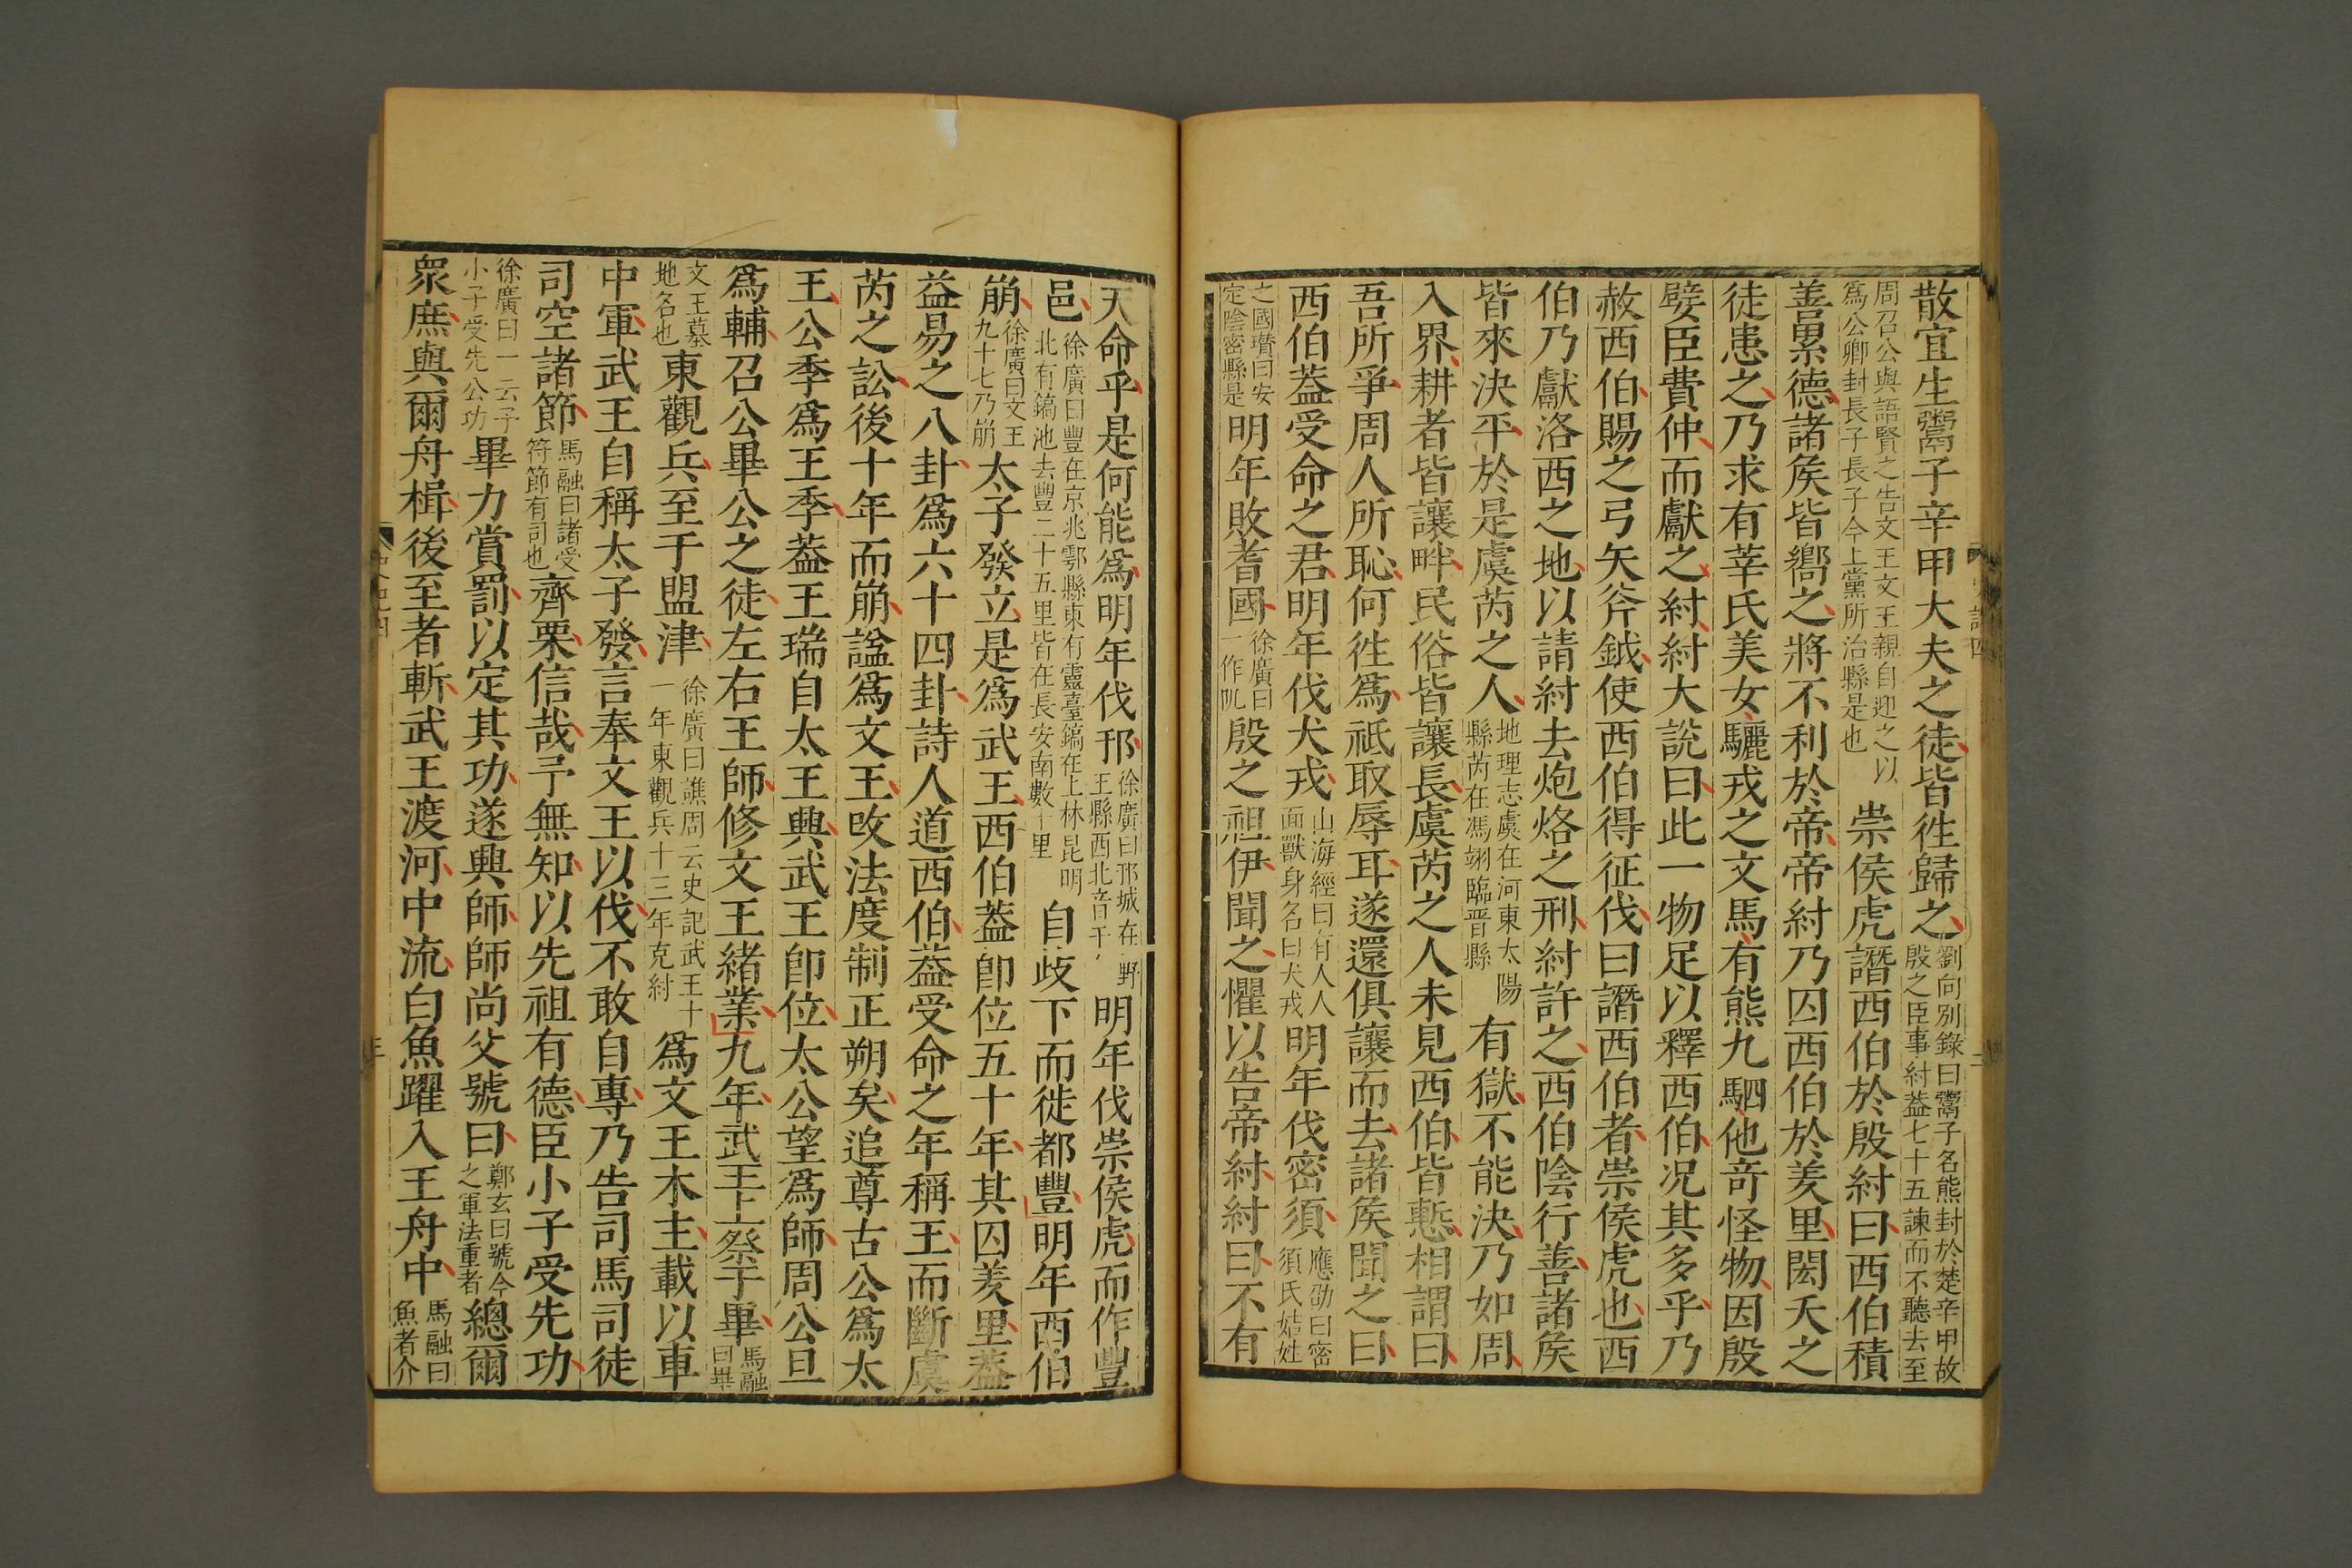 散宜生鬻子辛甲大夫之徒皆徃歸之劉向別錄曰鬻子名熊封於楚辛甲故殷之臣事紂葢七十五諫而不聽去至
周召公與語賢之告文王文王親自迎之以爲公卿封長子長子今上黨所治縣是也崇侯虎譖西伯於殷紂曰西伯積
善累德諸矦皆嚮之將不利於帝帝紂乃囚西伯於羑里閎夭之
徒患之乃求有莘氏美女驪戎之文馬有熊九駟他竒怪物因殷
嬖臣費仲而獻之紂紂大說曰此一物足以釋西伯况其多乎乃
赦西伯賜之弓矢斧鉞使西伯得征伐曰譖西伯者崇侯虎也西
伯乃獻洛西之地以請紂去炮烙之刑紂許之西伯陰行善諸矦
皆來決平於是虞芮之人地理志虞在河東太陽縣芮在馮翊臨晋縣有獄不能決乃如周
入界耕者皆讓畔民俗皆讓長虞芮之人未見西伯皆慙相謂曰
吾所爭周人所恥何徃爲祇取辱耳遂還俱讓而去諸矦聞之曰
西伯葢受命之君明年伐犬戎山海經曰有人人面獸身名曰犬戎明年伐密須應劭曰密須氏姞姓
之國瓚曰安定陰密縣是明年敗耆國徐廣曰一作阢殷之祖伊聞之懼以告帝紂紂曰不有
天命乎是何能爲明年伐邘徐廣曰邘城在野王縣西北音于明年伐崇侯虎而作豐
邑徐廣曰豐在京兆鄠縣東有靈臺鎬在上林昆明北有鎬池去豐二十五里皆在長安南數十里自歧下而徙都豐明年西伯
崩徐廣曰文王九十七乃崩太子發立是爲武王西伯葢卽位五十年其囚羑里葢
益易之八卦爲六十四卦詩人道西伯葢受命之年稱王而斷虞
芮之訟後十年而崩諡爲文王攺法度制正朔矣追尊古公爲太
王公季爲王季葢王瑞自太王興武王卽位太公望爲師周公旦
爲輔召公畢公之徒左右王師修文王緒業九年武王上祭于畢馬融曰畢
文王墓地名也東觀兵至于盟津徐廣曰譙周云史記武王十一年東觀兵十三年克紂爲文王木主載以車
中軍武王自稱太子發言奉文王以伐不敢自專乃告司馬司徒
司空諸節馬融曰諸受符節有司也齊栗信哉予無知以先祖有德臣小子受先功
徐廣曰一云予小子受先公功畢力賞罰以定其功遂興師師尚父號曰鄭玄曰號令之軍法重者總爾
衆庶與爾舟楫後至者斬武王渡河中流白魚躍入王舟中馬融曰魚者介